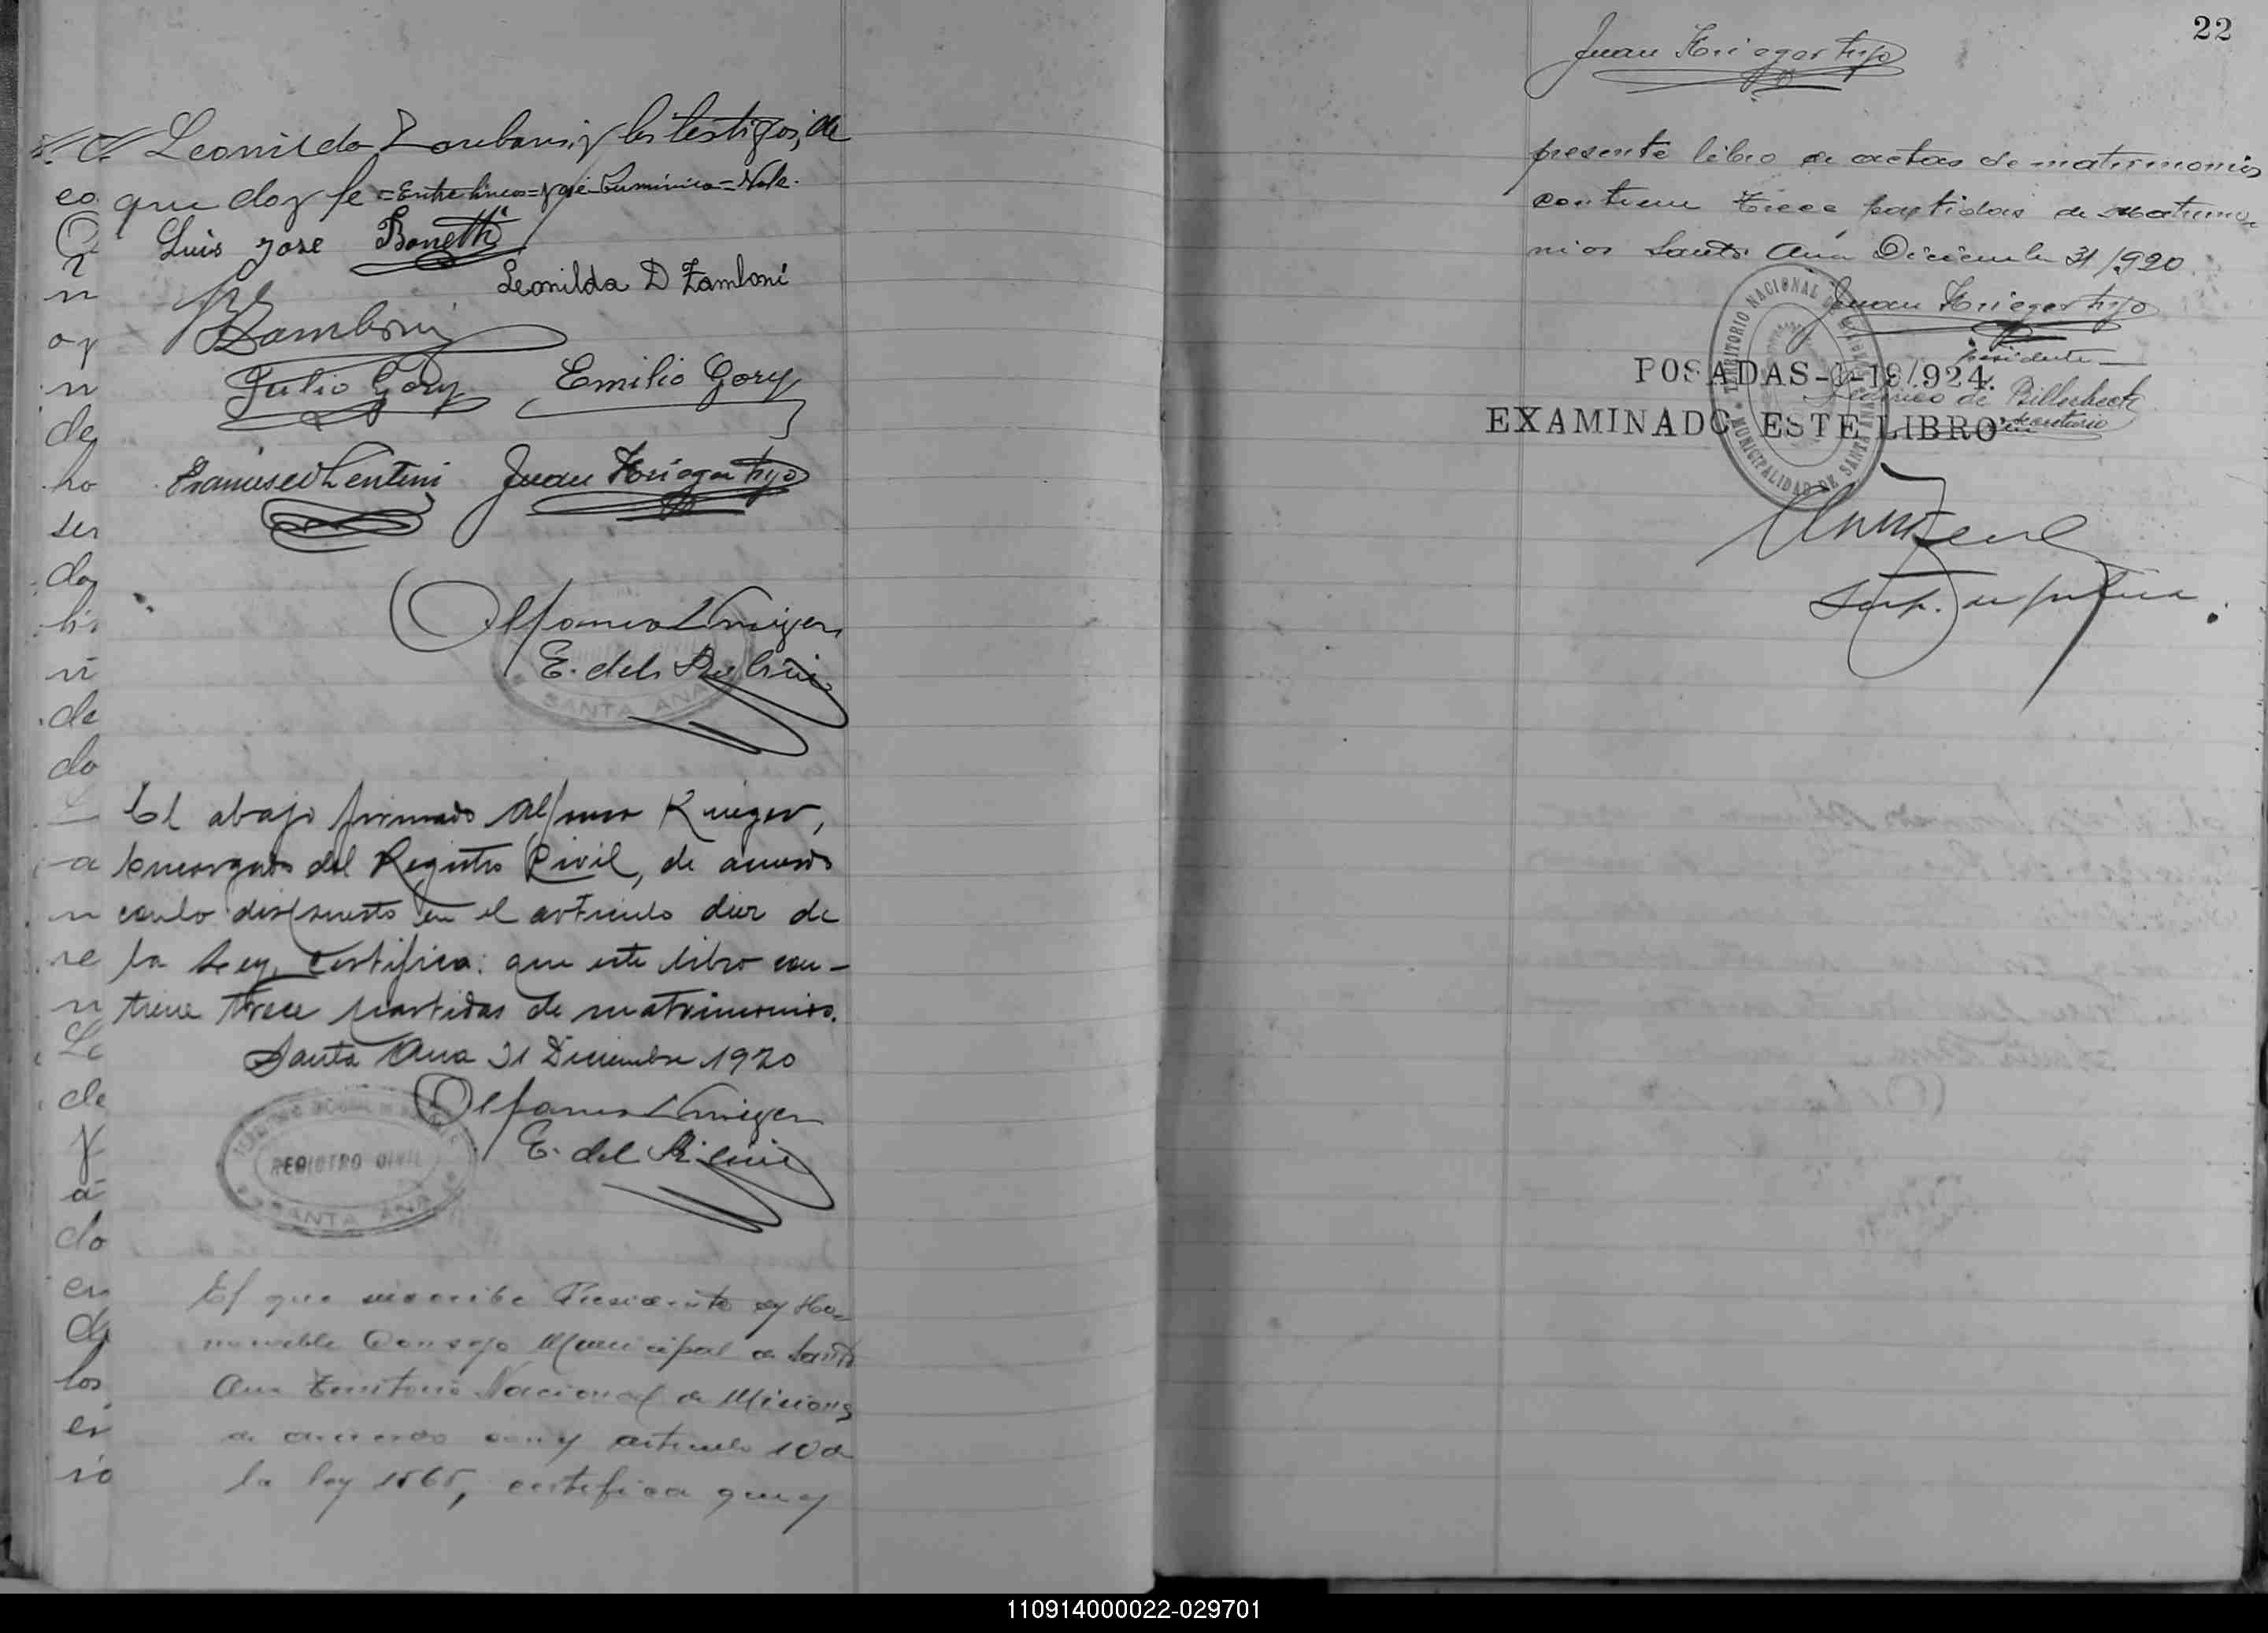 Leonilda Zamboni, y los testigos, de
que doy fe = Entre líneas = José Vale.
Luis Jose Bonetti
Leonilda D Zamboni
Zamboni
Julio Gory Emilio Gory
Francisco Lentini Juan Krieger hijo
Alfonso Krieger
E. del R. Civil
SANTA ANA
El abajo firmado Alfonso Krieger,
Encargado del Registro Civil, de acuerdo
con lo dispuesto en el articulo diez de
la Ley, certifica: que este libro con-
tiene trece partidas de matrimonios.
Santa Ana 31 Diciembre 1920
Alfonso Krieger
E. del R. Civil
REGISTRO CIVIL
SANTA ANA
El que suscribe Presidente del Ho-
norable Consejo Municipal de Santa
Ana Territorio Nacional de Misiones
de acuerdo con el articulo 10 de
la ley 1565, certifica que el
eo
n
oy
n
de
ho
ser
do
hi
ni
de
do
a
n
re
n
Le
de
y
a
do
en
de
los
ei
rio
22
Juan Krieger hijo
presente libro de actas de matrimonios
contiene trece partidas de matrimo
nios Santa Ana Diciembre 31/920
Juan Krieger hijo
presidente
TERRITORIO NACIONAL DE MISIONES
MUNICIPALIDAD DE SANTA ANA
POSADAS-1-19/924.
Federico de Billerbeck
secretario
EXAMINADO ESTE LIBRO
110914000022-029701